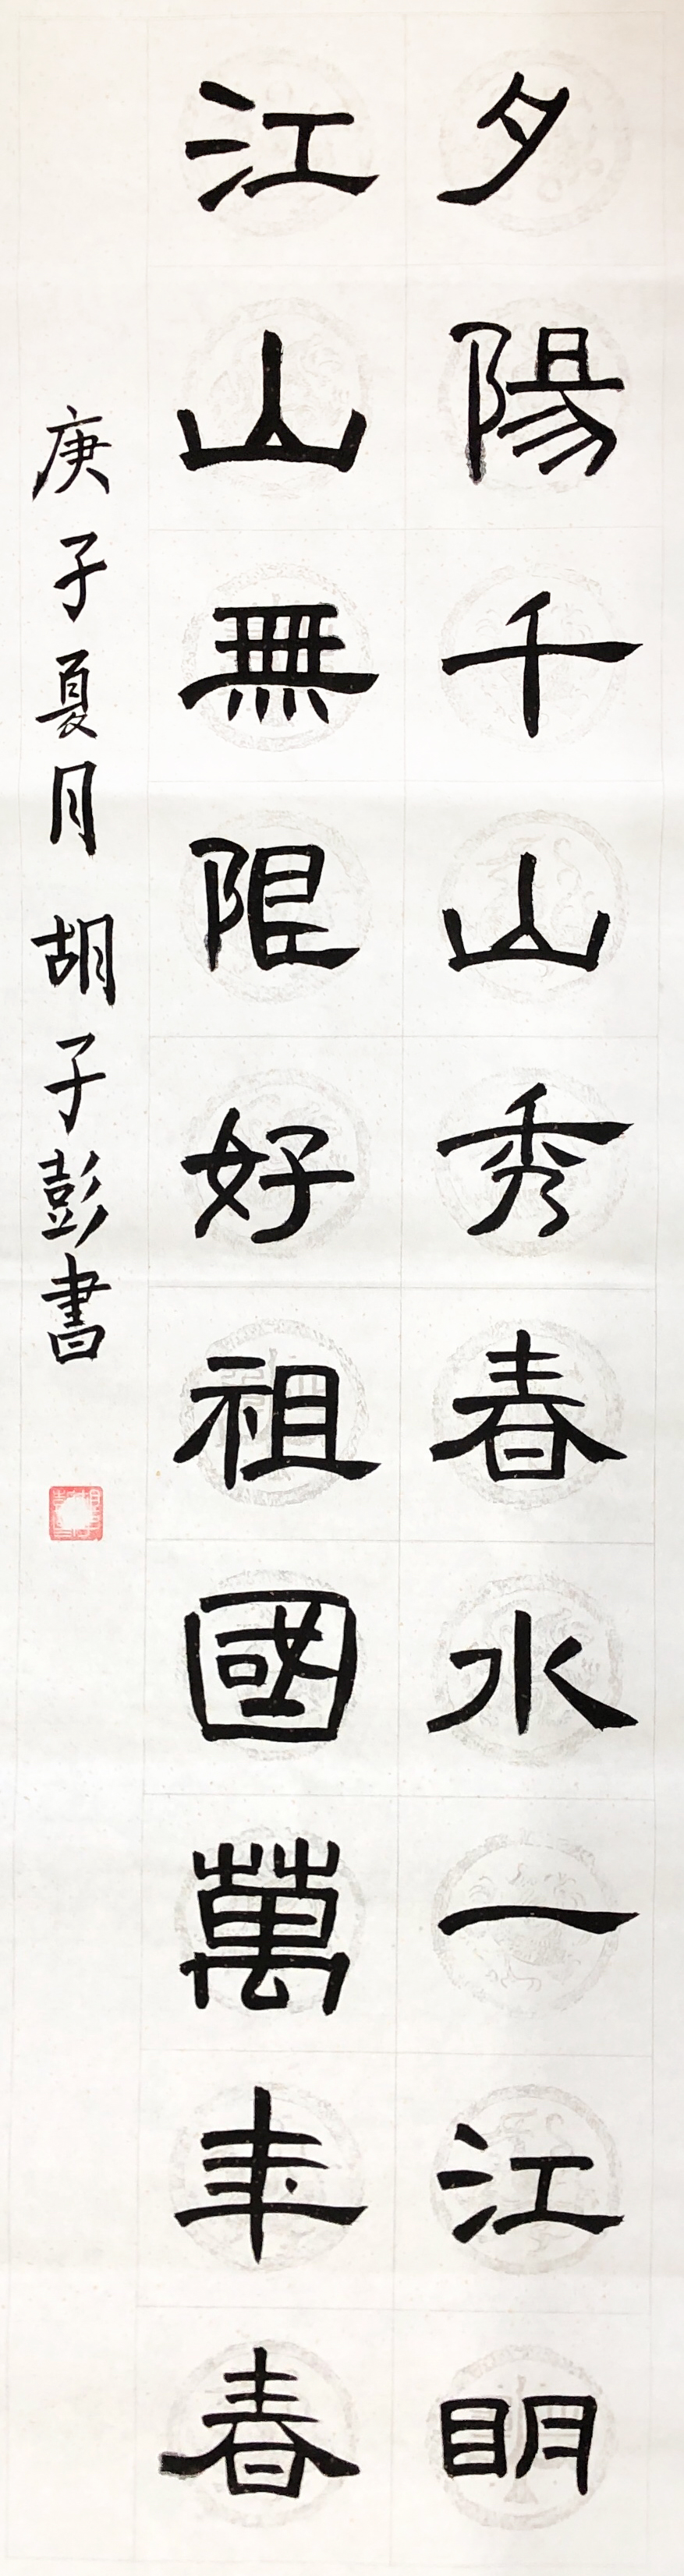 夕陽千山秀春水一江明
江山無限好祖國萬年春
庚子夏月胡子彭書